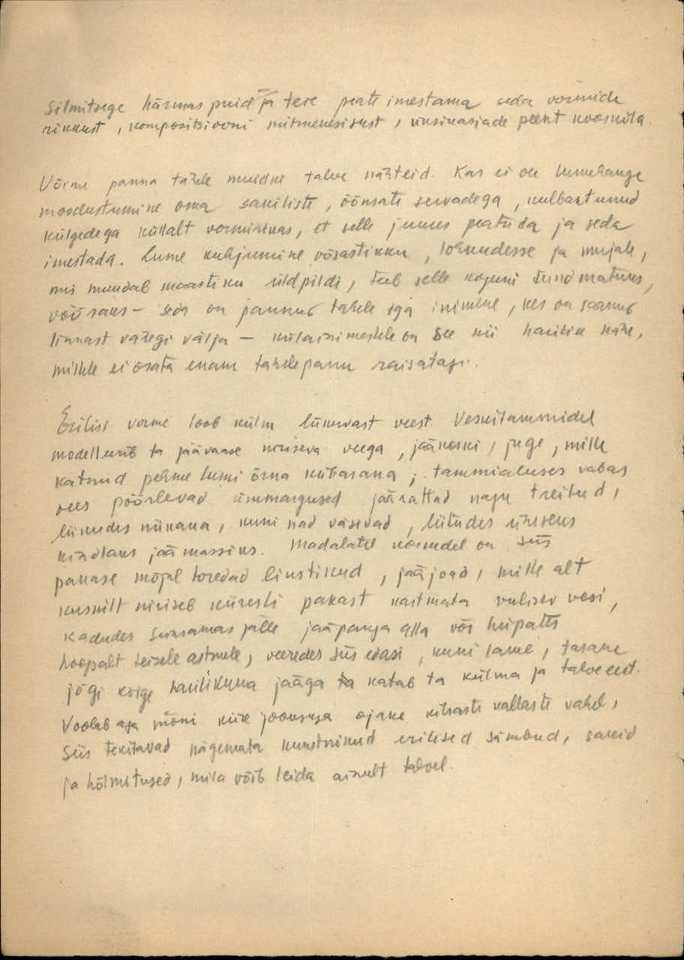 Silmitsege härmas puid ja teie peate imestama seda vormide
rikkust, kompositsiooni mitmekesisust, üksikasjade peent kooskõla.
Võime panna tähele muidne talve nähteid. Kas ei ole lumehange
moodustumine oma sakiliste, õõnsate servadega, kulbastunud
külgedega küllalt vormirikas, et selle juures peatuda ja seda
imestada. Lume kuhjumine võsastikku, lohkudesse ja mujale,
mis muudab maastiku üldpildi, teeb selle koguni tundmatuks,
võõraks — seda on pannud tähele iga inimene, kes on saanud
linnast väljagi välja — külainimestele on see nii harilik nähe,
millele ei osata enam tähelepanu raisatagi.
Erilisi vorme loob külm liikuvast veest. Veskitammidel
modelleerib ta jäävaase niriseva veega, jääkoski, juge, mille
katnud pehme lumi õrna kübarana; tammialuses vabas
vees pöörlevad ümmargused jäärattad nagu treitud,
liikudes niikaua, kuni nad väsivad, liitudes ühiseks
kindlaks jäämassiks. Madalatel koskedel on siis
pakase mõjul toredad liustikud, jääjoad, mille alt
kuskilt niriseb kiiresti pakast kartmata vulisev vesi,
kadudes sinnasamas jälle jääpanga alla või hüpates
hoopalt teisele astmele, veeredes siis edasi, kuni laine, tasane
jõgi kõige harilikuma jääga ta katab ta külma ja talve eest.
Voolab aga mõni kiire jooksuga ojake kitsaste kallaste vahel,
siis tekitavad nägemata kunstnikud erilised sambad, sakid
ja hõlmitused, mida võib leida ainult talvel.